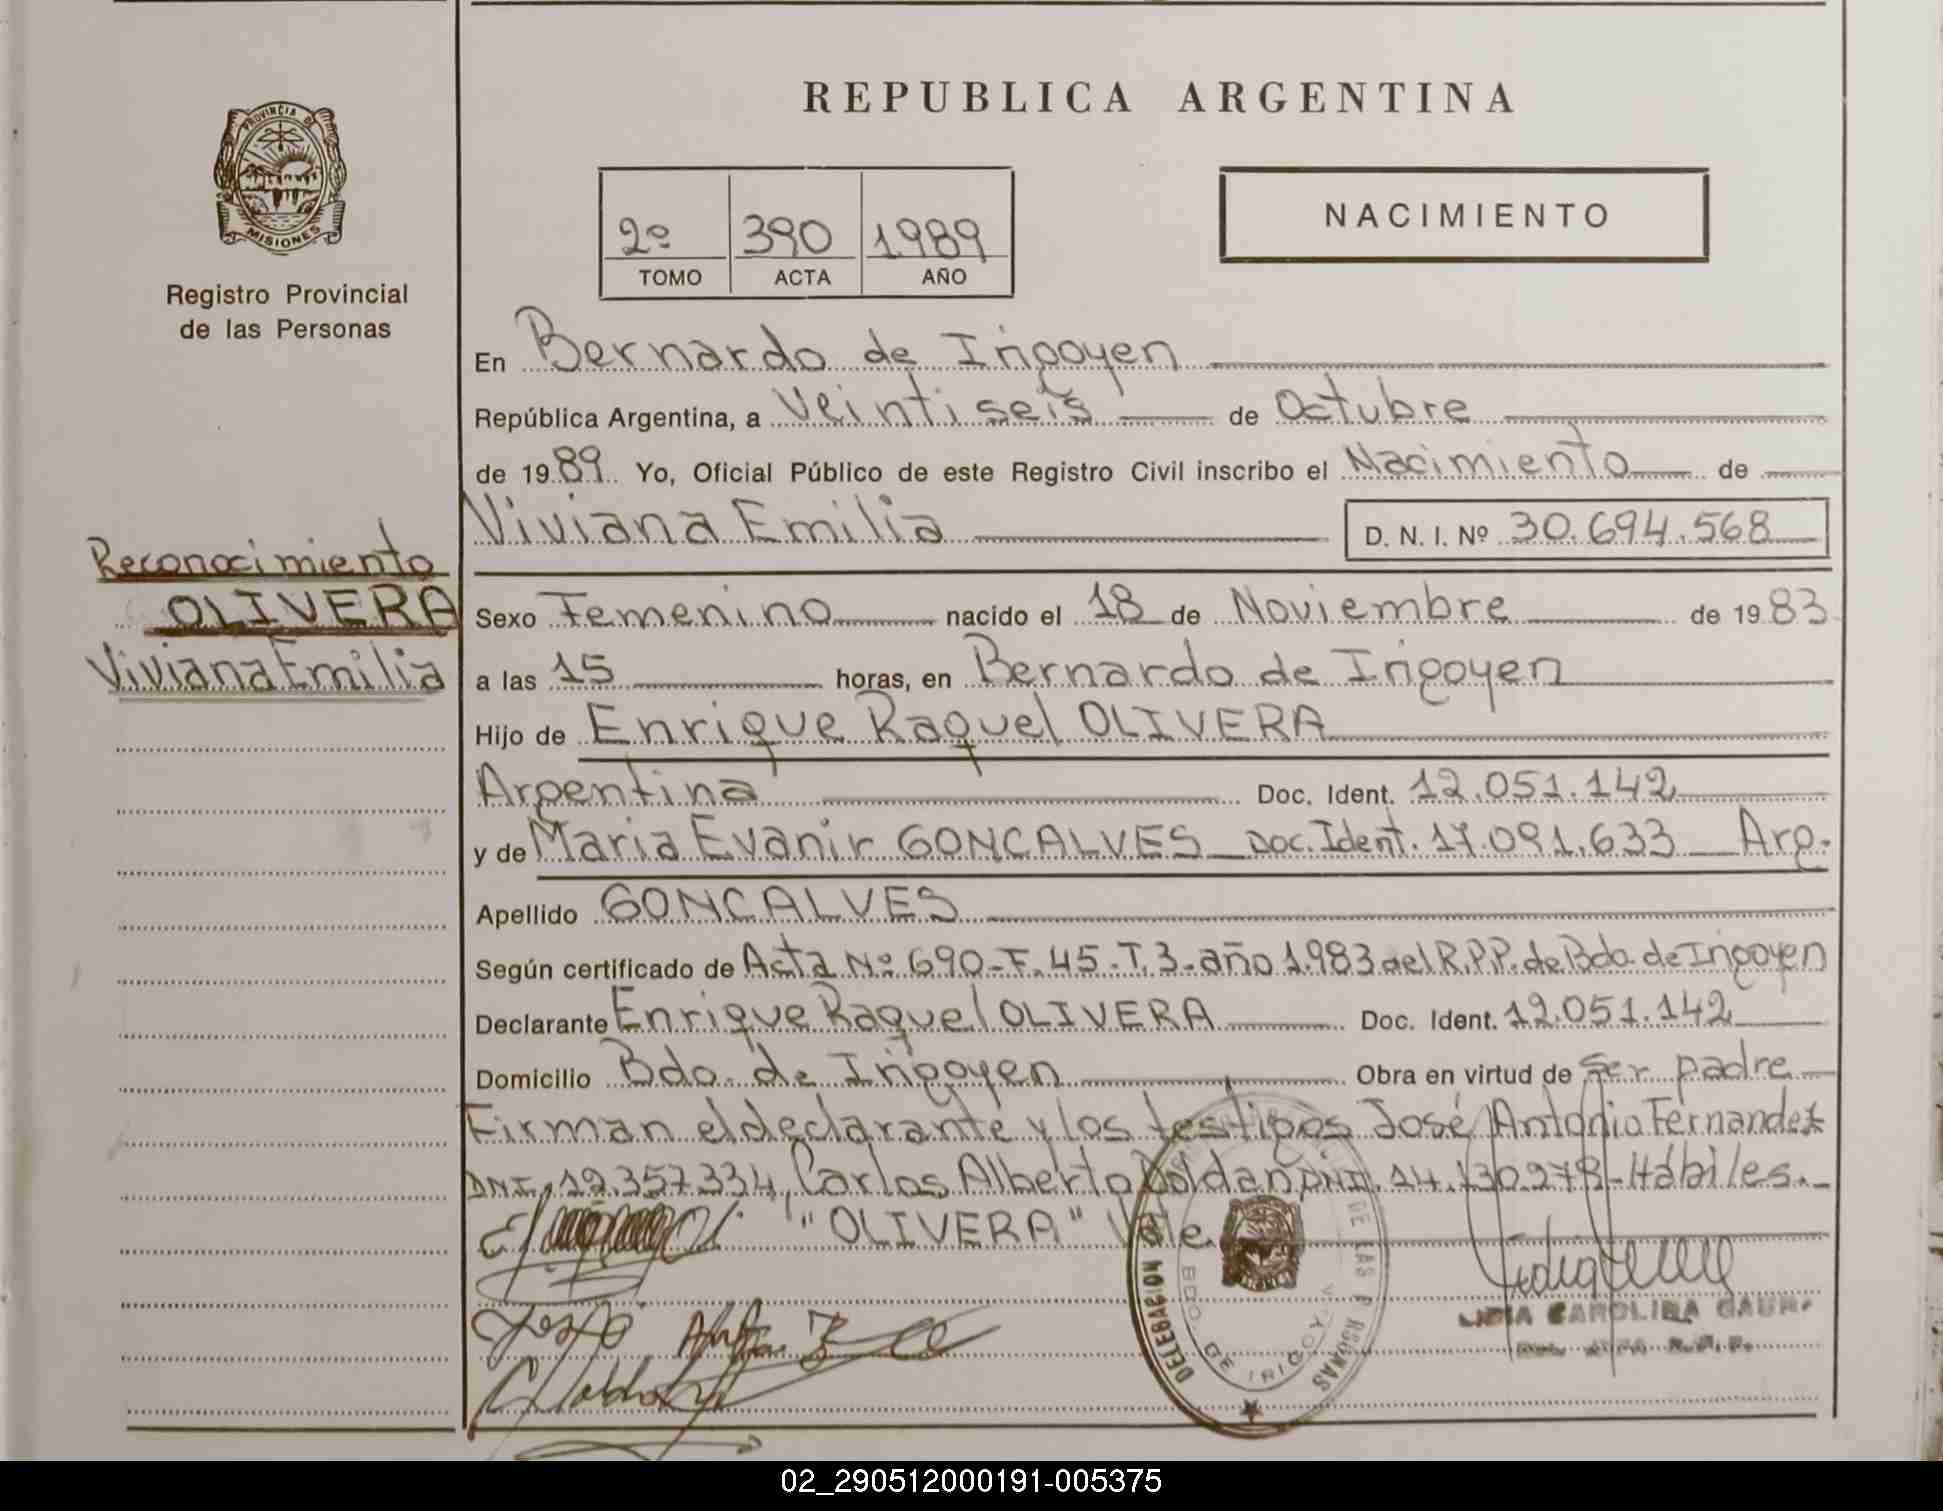 REPUBLICA ARGENTINA
PROVINCIA DE
MISIONES
Registro Provincial
de las Personas
2º 390 1989
TOMO ACTA AÑO
NACIMIENTO
En Bernardo de Irigoyen
República Argentina, a Veintiseis de Octubre
de 1989. Yo, Oficial Público de este Registro Civil inscribo el Nacimiento de
Viviana Emilia D. N. I. Nº 30.694.568
Reconocimiento
OLIVERA
Viviana Emilia
Sexo Femenino nacido el 18 de Noviembre de 1983
a las 15 horas, en Bernardo de Irigoyen
Hijo de Enrique Raquel OLIVERA
Argentina Doc. Ident. 12.051.142
y de Maria Evanir GONCALVES Doc. Ident. 17.091.633 Arg.
Apellido GONCALVES
Según certificado de Acta Nº 690-F. 45-T. 3-año 1.983 del R.P.P. de Bdo. de Irigoyen
Declarante Enrique Raquel OLIVERA Doc. Ident. 12.051.142
Domicilio Bdo. de Irigoyen Obra en virtud de ser padre
Firman el declarante y los testigos José Antonio Fernandez
DNI. 12.357.334, Carlos Alberto Doldan DNI. 14.130.278-Hábiles.
"OLIVERA" Vale.
DELEGACION DE LAS PERSONAS
BDO. DE IRIGOYEN
LIDIA CAROLINA
02_290512000191-005375